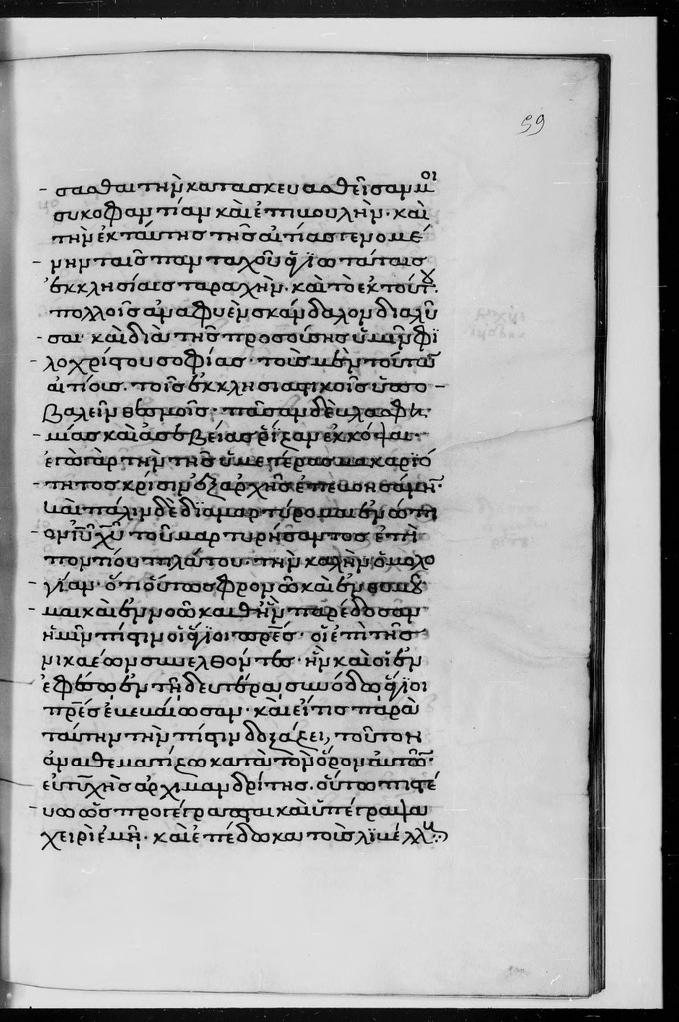 59
σασθαι τὴν κατασκευασθεῖσάν μοι
συκοφαντίαν καὶ ἐπιβουλὴν· καὶ
τὴν ἐκ ταύτης τῆς αἰτίας γενομέ
νην ταῖς πανταχοῦ ἁγιωτάταις
ἐκκλησίαις ταραχὴν. καὶ τὸ ἐκ τούτου
πολλοῖς ἀναφυὲν σκάνδαλον διαλῦ
σαι καὶ διὰ τῆς προσούσης ὑμῖν φι
λοχρίστου σοφίας· τοὺς μὲν τούτων
αἰτίους. τοῖς ἐκκλησιαστικοῖς ὑπο
βαλεῖν θεσμοῖς· πᾶσαν δὲ βλασφη
μίας καὶ ἀσεβείας ῥίζαν ἐκκόψαι·
ἐγὼ γὰρ τὴν τῆς ὑμετέρας μακαριό
τητος κρίσιν ἐξ ἀρχῆς ἐπεβοησάμην·
καὶ πάλιν δὲ διαμαρτύρομαι ἐνώπι
ον ἰυ χυ τοῦ μαρτυρήσαντος ἐπὶ
ποντίου πιλάτου· τὴν καλὴν ὁμολο
γίαν· ὅτι οὕτως φρονῶ καὶ
καὶ ἐν νοῶ καθ ἣν παρέδοσαν
ἡμῖν πίστιν οἱ ἅγιοι πρες· οἱ ἐπὶ τῆς
νικαέων συνελθόντες· ἣν καὶ οἱ ἐν
ἐφέσῳ ἐν τῇ δευτέρᾳ συνόδῳ ἅγιοι
πρες ἐβεβαίωσαν· καὶ εἴ τις παρὰ
ταύτην τὴν πίστιν δοξάζει, τοῦτον
ἀναθεματίζω κατὰ τὸν ὅρον αὐτῶν·
εὐτυχὴς ἀρχιμανδρίτης. οὕτω πιστέ
υω ὡς προγέγραπται καὶ ὑπέγραψα
χειρὶ ἐμῇ· καὶ ἐπέδωκα τοὺς λιβέλλους